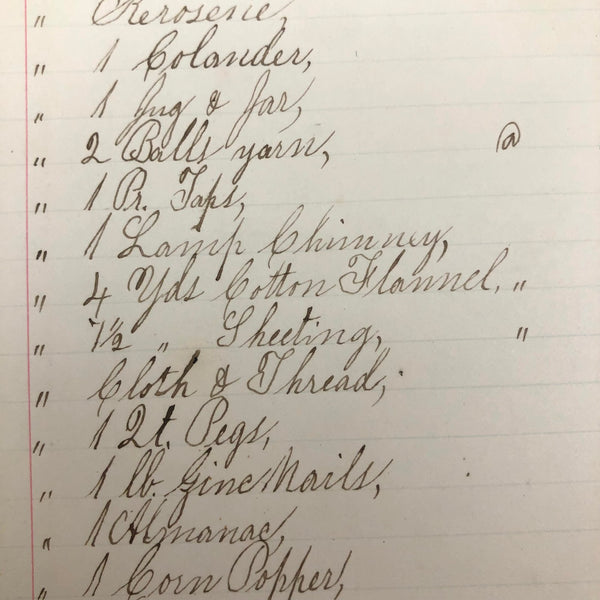 " Kerosene,
" 1 Colander,
" 1 Jug & Jar,
" 2 Balls yarn, @
" 1 Pr. Taps,
" 1 Lamp Chimney,
" 4 Yds Cotton Flannel, "
" 7½ " Sheeting, "
" Cloth & Thread,
" 1 Qt. Pegs,
" 1 lb. Zinc Nails,
" 1 Almanac,
" 1 Corn Popper,